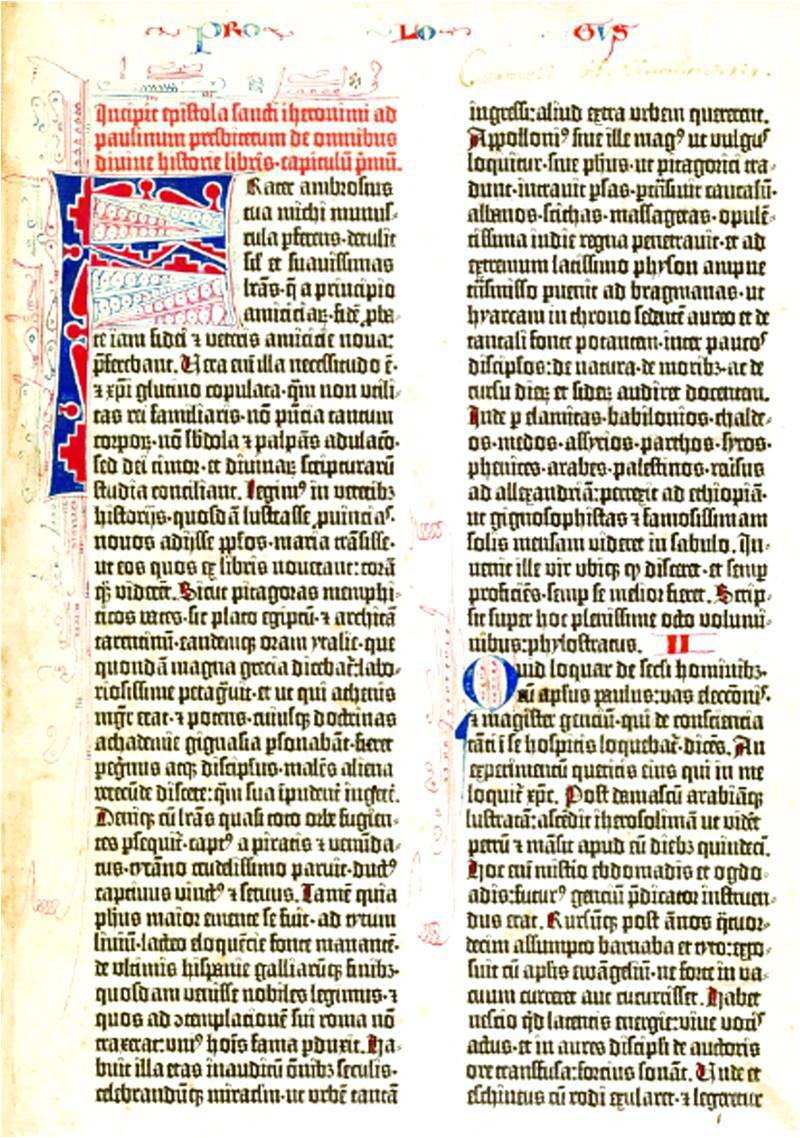 PRO LO GVS
Incipit epistola sancti iheronimi ad
paulinum presbiterum de omnibus
divine historie libris·capitulū p̄mū.
Frater ambrosius
tua michi munus-
cula p̄ferens·detulit
sił et suavissimas
lrās·q̄ a principio
amiciciaꝝ·fidē ꝓba-
te iam fidei ⁊ veteris amicicie nova:
p̄ferebant. Vera eni̅ illa necessitudo ē·
⁊ xp̄i glutino copulata·qm̄ non utili-
tas rei familiaris·nō pn̄cia tantum
corpoꝝ·nō sb̄dola ⁊ palpās adulac̄o·
sed dei timor·et divinaꝝ scripturarū
studia conciliant. Legimꝰ in veteribꝫ
historijs·quosdā lustrasse ꝓuīncias·
novos adijsse pp̄los·maria trāsisse·
ut eos quos ex libris noverant:corā
qꝫ viderēt. Sicut pitagoras memphi-
ticos vates·sic plato egiptū·⁊ architā
tarentinū·eandemqꝫ oram ytalie·que
quondā magna grecia dicebat̄:labo-
riosissime peragravit·et ut qui athenis
mgr̄ erat·⁊ potens·cuiusqꝫ doctrinas
achademie gignasia ꝑsonabāt·fieret
peg̓nus atqꝫ discipulus·malēs aliena
verecūde discere:qm̄ sua īpudent̄ ingerē.
Deniqꝫ cū lrās quasi toto orbe fugien-
tes ꝑsequit̄·captꝰ a piratis ⁊ venūda-
tus·tyrāno crudelissimo paruit·ductꝰ
captivus vinctꝰ ⁊ servus. Tamē quia
phūs maior emente se fuit·ad tytum
liviū·lacteo eloquēcie fonte manantē·
de ultimis hispanie galliarūqꝫ finibꝫ·
quosdam venisse nobiles legimus·⁊
quos ad ꝯtemplationē sui roma nō
traxerat:uniꝰ hoīs fama ꝑduxit. Ha-
buit illa etas inauditū oībꝫ seculis·
celebrandūqꝫ miraclm̄·ut urbē tantā
ingressi:aliud extra urbem quererent.
Appolloniꝰ sive ille magꝰ ut vulgus
loquitur·sive phūs·ut pitagorici tra-
dunt·intravit ꝑsas·ꝑtrāsivit caucasū·
albanos·scithas·massagetas·opulē-
tissima indie regna penetravit·et ad
extremum latissimo physon ampne
trāsmisso pervenit ad bragmanas·ut
hyarcam in throno sedentē aureo et de
tantali fonte potantem·inter paucos
discipulos:de natura·de moribꝫ·ac de
cursu dieꝝ et sideꝝ audiret docentem.
Inde ꝑ elamitas·babilonios·chalde-
os·medos·assyrios·parthos·syros·
phenices·arabes·palestinos·reūsus
ad allexandriā:perrexit ad ethiopiā·
ut gignosophistas ⁊ famosissimam
solis mensam videret in sabulo. In-
venit ille vir ubiqꝫ qꝫ disceret·et semꝑ
proficiēs·semꝑ se melior fieret. Scrip-
sit super hoc plenissime octo volumi-
nibus:phylostratus. II
Quid loquar de secli hominibꝫ·
cū apl̄us paulus:vas electōnis·
⁊ magister genciū·qui de consciencia
tāti ī se hospitis loquebat̄·dicēs. An
experimentū queritis eius qui in me
loquit̄ xp̄c. Post damascū arabiāqꝫ
lustratā:ascēdit iherosolimā ut vidēt
petrū ⁊ māsit apud eū diebꝫ quindecī.
Hoc eni̅ mistio ebdomadis et ogdo-
adis:futurꝰ genciū p̄dicator instruen-
dus erat. Rursūqꝫ post ānos q̄tuor-
decim assumpto barnaba et tyto:expo-
suit cū apl̄is ewāgeliū·ne forte in va-
cuum curreret aut cucurrisset. Habet
nescio qd̄ latentis energie:vive vocis
actus·et in aures discipli de auctoris
ore transfusa:forcius sonat. Unde et
eschineus cū rodi exularet·⁊ legeretur